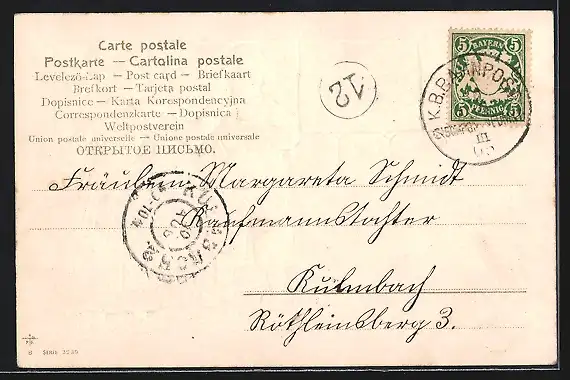 Carte postale
Postkarte — Cartolina postale
Levelező-Lap — Post card — Briefkaart
Brefkort — Tarjeta postal
Dopisnice — Karta Korespondencyjna
Correspondenzkarte — Dopisnica
Weltpostverein
Union postale universelle — Unione postale universale
ОТКРЫТОЕ ПИСЬМО.
12
5 BAYERN 5
5 PFENNIG 5
K.B.BAHNPOST
III
Fräulein Margareta Schmidt
Kaufmannstochter
Kulmbach
Röthleinsberg 3.